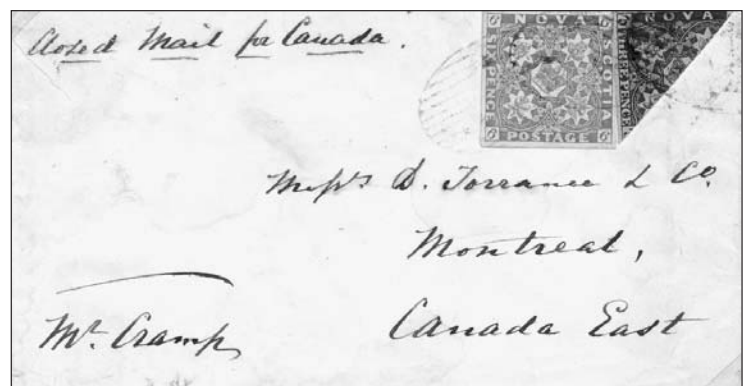 Closed Mail for Canada.
NOVA SCOTIA
SIX PENCE
POSTAGE
6 6
NOVA
THREE PENCE
Mess^rs D. Torrance & Co.
Montreal,
Canada East
Mr. Cramp